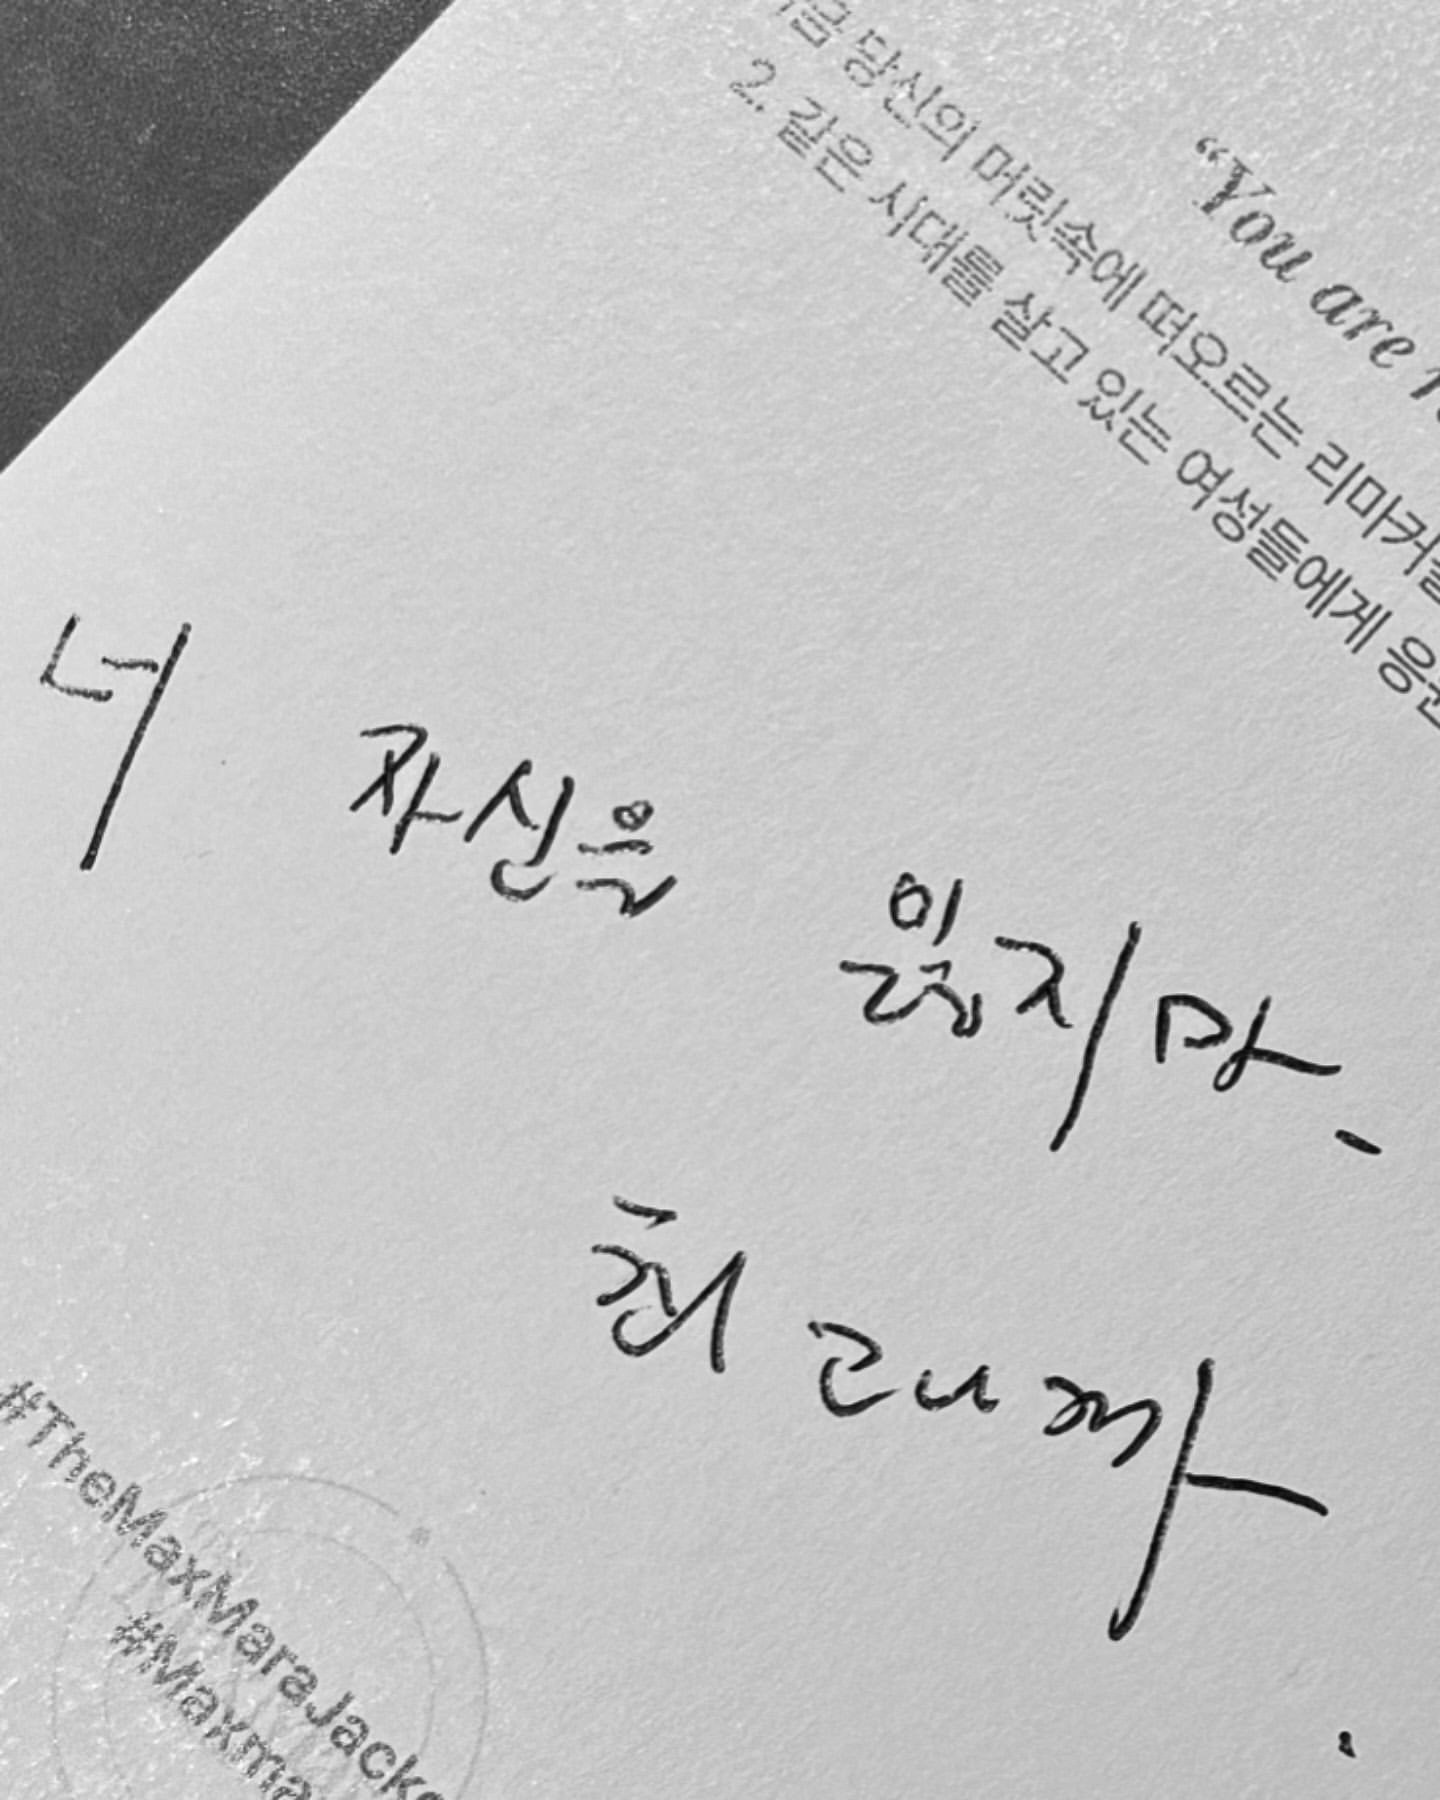 “You are
당신의 머릿속에 떠오르는 리마커
2. 같은 시대를 살고 있는 여성들에게 응
너 자신을 잃지마.
최고니까.
#TheMaxMaraJacke
#Maxma